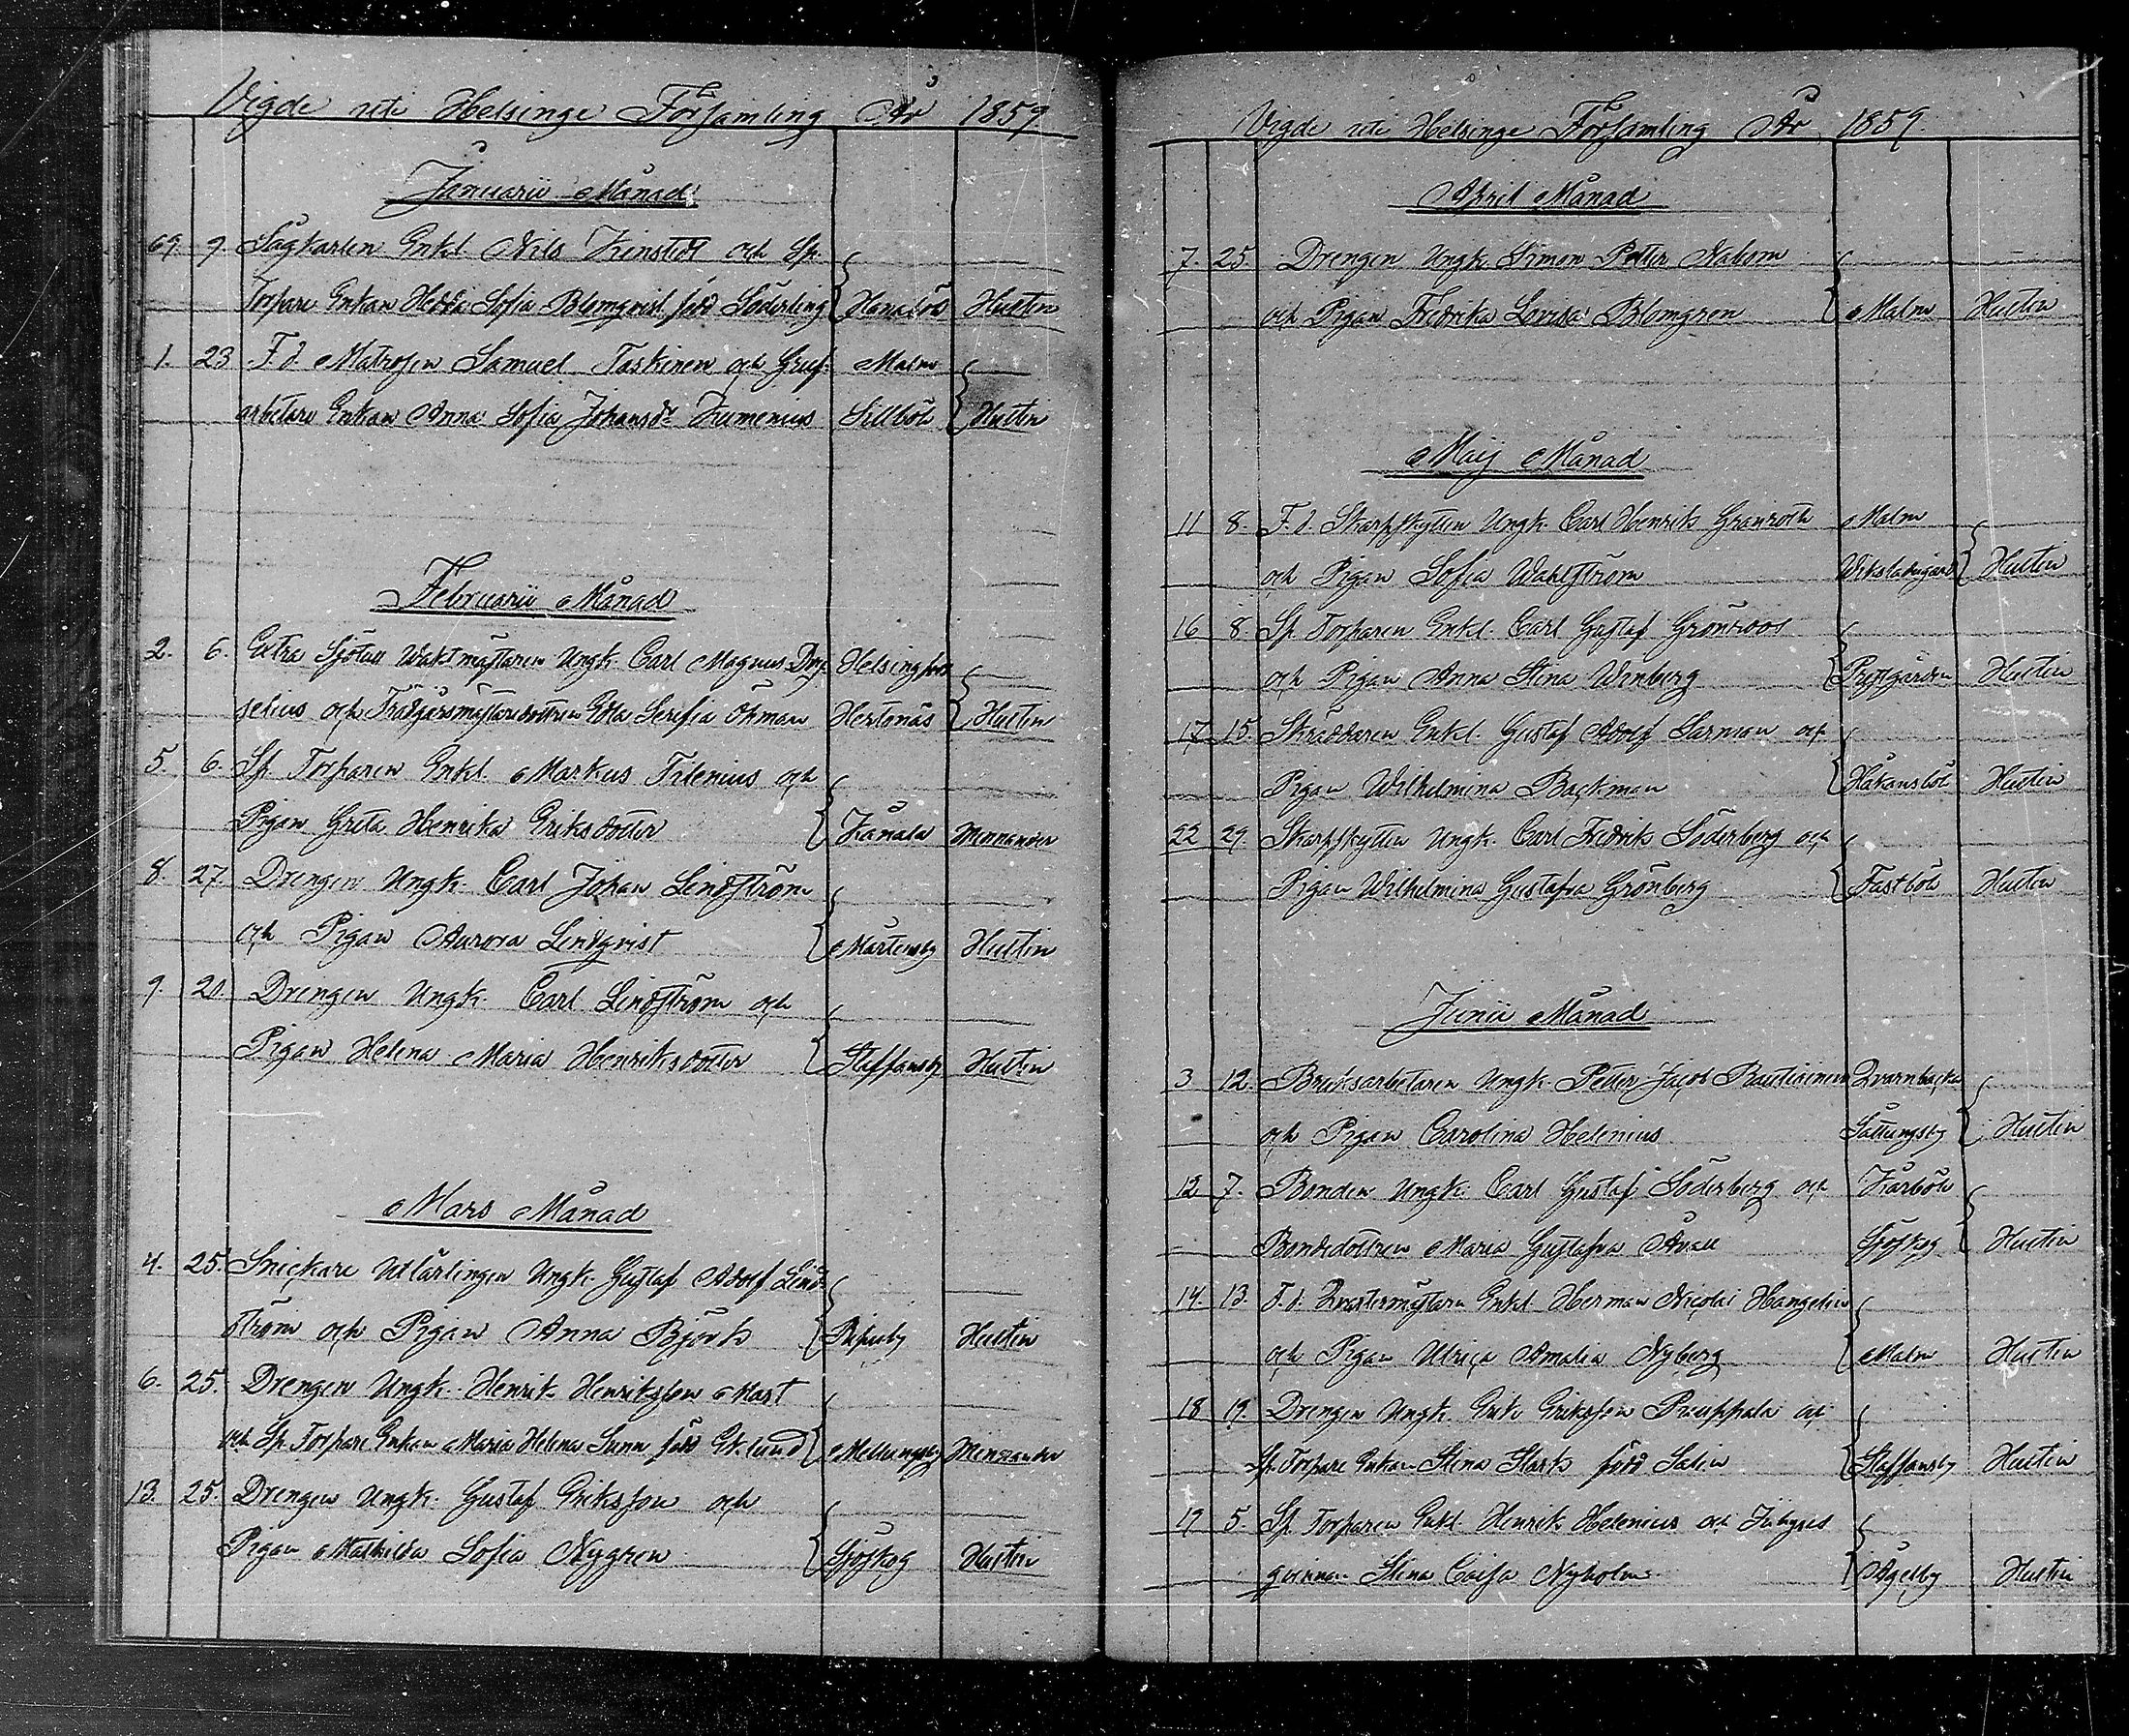 Vigde uti Helsinge Församling År 1859
Januarii Månad
69. 9. Sågkarlen Enkl. Nils Kinstedt och Sp.
Torpare Enkan Hedda Sofia Blomqvist född Söderling Hanaböle Hustin
1. 23 F.d. Matrosen Samuel Taskinen och Gruf- Malm
arbetare Enkan Anna Sofia Johansdr Kumenius Sillböle Hustin
Februarii Månad
2. 6. Extra Sjötull Waktmästaren Ungk. Carl Magnus Helsingfors
selius och Trädgårsmästaredottren Edla Serafia Öhman Hertonäs Hustin
5. 6. Sp. Torparen Enkl. Markus Filenius och
Pigan Greta Henrika Eriksdotter Kånala Monander
8. 27. Drengen Ungk. Carl Johan Lindström
och Pigan Aurora Lindqvist Mårtensby Hustin
9. 20. Drengen Ungk. Carl Lindström och
Pigan Helena Maria Henriksdotter Staffansby Hustin
Mars Månad
4. 25. Snickare Utlärlingen Ungk. Gustaf Adolf Lind-
ström och Pigan Anna Björk Hustin
6. 25. Drengen Ungk. Henrik Henriksson Mart
och Sp. Torpare Enkan Maria Helena Sunn född Eklund Mellungsby Monander
13. 25. Drengen Ungk. Gustaf Eriksson och
Pigan Mathilda Sofia Nygren Sjöskog Hustin
Vigde uti Helsinge Församling År 1859.
April Månad
7. 25. Drengen Ungk. Simon Petter Nalsom
och Pigan Fredrika Lovisa Blomgren Malm Hustin
Maij Månad
11 8. F.d. Skarpskytten Ungk. Carl Henrik Granroth Malm
och Pigan Sofia Wahlström Hustin
16 8. Sp. Torparen Enkl. Carl Gustaf Grönroos
och Pigan Anna Stina Winberg Prestgården Hustin
17 15. Skräddaren Enkl. Gustaf Adolf Sarman och
Pigan Wilhelmina Backman Håkansböle Hustin
22 29. Skarpskytten Ungk. Carl Fredrik Söderberg och
Pigan Wilhelmina Gustafva Grönberg Fastböle Hustin
Junii Månad
3 12. Bruksarbetaren Ungk. Petter Jacob Rautioinen Qvarnbacka
och Pigan Carolina Helenius Sottungsby Hustin
12 7. Bonden Ungk. Carl Gustaf Söderberg och Kårböle
Bondedottren Maria Gustafva Avall Sjöskog Hustin
14. 13. F.d. Qvartermästarn Enkl. Herman Nicolai Hangelin
och Pigan Ulrica Amalia Nyberg Malm Hustin
18 19. Drengen Ungk. Erik Eriksson Pauppala och
Sp. Torpare Enkan Stina Stark född Salin Staffansby Hustin
19 5. Sp. Torparen Enkl. Henrik Helenius och Inhyses
qvinnan Stina Caisa Nyholm. Åggelby Hustin